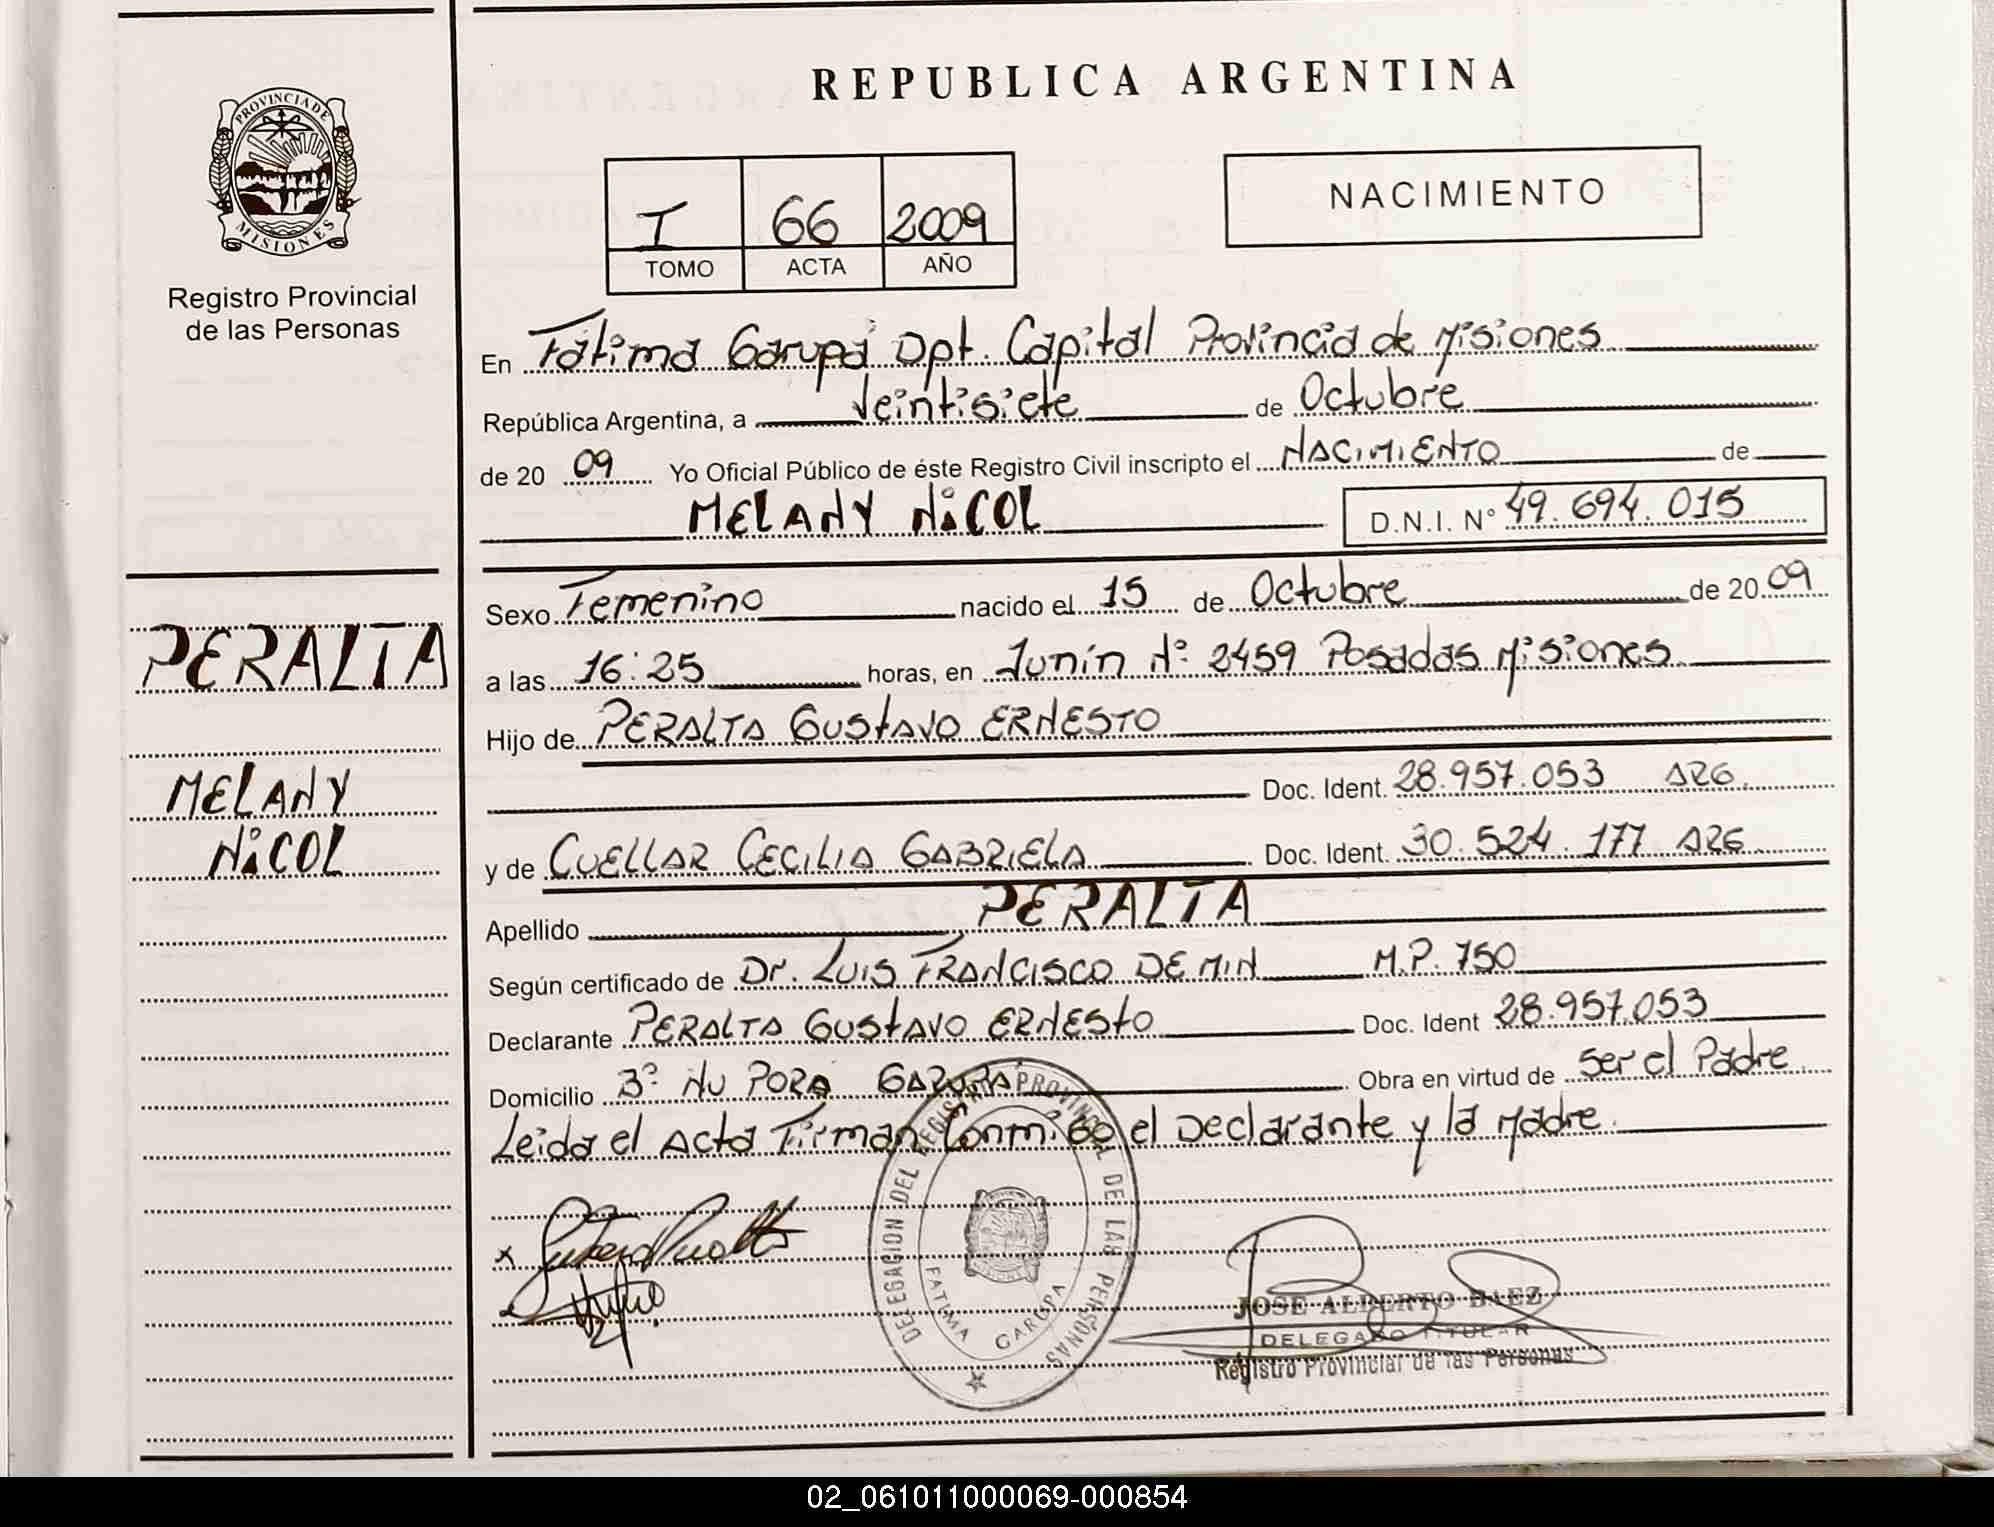 REPUBLICA ARGENTINA
PROVINCIA DE
MISIONES
Registro Provincial
de las Personas
I 66 2009
TOMO ACTA AÑO
NACIMIENTO
En Fátima Garupá Dpt. Capital Provincia de Misiones
República Argentina, a Veintisiete de Octubre
de 20 09 Yo Oficial Público de éste Registro Civil inscripto el NACIMIENTO de
MELANY NICOL D.N.I. N° 49.694.015
PERALTA
MELANY
NICOL
Sexo Femenino nacido el 15 de Octubre de 20 09
a las 16:25 horas, en Junín N° 2459 Posadas Misiones
Hijo de PERALTA GUSTAVO ERNESTO
Doc. Ident. 28.957.053 ARG.
y de CUELLAR CECILIA GABRIELA Doc. Ident. 30.524.177 ARG
Apellido PERALTA
Según certificado de Dr. LUIS FRANCISCO DEMIN M.P. 750
Declarante PERALTA GUSTAVO ERNESTO Doc. Ident 28.957.053
Domicilio B° ÑU PORA GARUPA Obra en virtud de ser el Padre
Leida el Acta Firman Conmigo el Declarante y la Madre.
DELEGACION DEL REGISTRO PROVINCIAL DE LAS PERSONAS
FATIMA GARUPA
JOSE ALBERTO BAEZ
DELEGADO TITULAR
Registro Provincial de las Personas
02_061011000069-000854